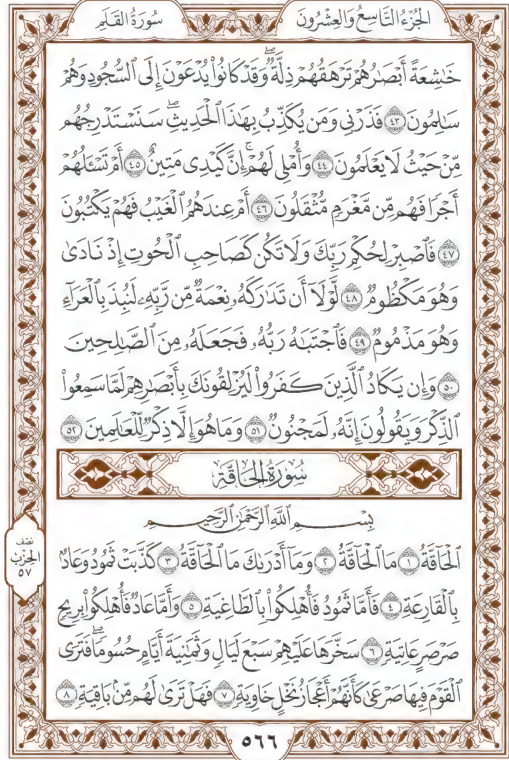 الجُزْءُ التَّاسِعُ وَالعِشْرُونَ
سُورَةُ القَلَمِ
خَٰشِعَةً أَبْصَٰرُهُمْ تَرْهَقُهُمْ ذِلَّةٌۖ وَقَدْ كَانُوا۟ يُدْعَوْنَ إِلَى ٱلسُّجُودِ وَهُمْ
سَٰلِمُونَ ٤٣ فَذَرْنِى وَمَن يُكَذِّبُ بِهَٰذَا ٱلْحَدِيثِۖ سَنَسْتَدْرِجُهُم
مِّنْ حَيْثُ لَا يَعْلَمُونَ ٤٤ وَأُمْلِى لَهُمْۚ إِنَّ كَيْدِى مَتِينٌ ٤٥ أَمْ تَسْـَٔلُهُمْ
أَجْرًا فَهُم مِّن مَّغْرَمٍ مُّثْقَلُونَ ٤٦ أَمْ عِندَهُمُ ٱلْغَيْبُ فَهُمْ يَكْتُبُونَ
٤٧ فَٱصْبِرْ لِحُكْمِ رَبِّكَ وَلَا تَكُن كَصَاحِبِ ٱلْحُوتِ إِذْ نَادَىٰ
وَهُوَ مَكْظُومٌ ٤٨ لَّوْلَآ أَن تَدَٰرَكَهُۥ نِعْمَةٌ مِّن رَّبِّهِۦ لَنُبِذَ بِٱلْعَرَآءِ
وَهُوَ مَذْمُومٌ ٤٩ فَٱجْتَبَٰهُ رَبُّهُۥ فَجَعَلَهُۥ مِنَ ٱلصَّٰلِحِينَ
٥٠ وَإِن يَكَادُ ٱلَّذِينَ كَفَرُوا۟ لَيُزْلِقُونَكَ بِأَبْصَٰرِهِمْ لَمَّا سَمِعُوا۟
ٱلذِّكْرَ وَيَقُولُونَ إِنَّهُۥ لَمَجْنُونٌ ٥١ وَمَا هُوَ إِلَّا ذِكْرٌ لِّلْعَٰلَمِينَ ٥٢
سُورَةُ الحَاقَّةِ
بِسْمِ ٱللَّهِ ٱلرَّحْمَٰنِ ٱلرَّحِيمِ
ٱلْحَآقَّةُ ١ مَا ٱلْحَآقَّةُ ٢ وَمَآ أَدْرَىٰكَ مَا ٱلْحَآقَّةُ ٣ كَذَّبَتْ ثَمُودُ وَعَادٌۢ
بِٱلْقَارِعَةِ ٤ فَأَمَّا ثَمُودُ فَأُهْلِكُوا۟ بِٱلطَّاغِيَةِ ٥ وَأَمَّا عَادٌ فَأُهْلِكُوا۟ بِرِيحٍ
صَرْصَرٍ عَاتِيَةٍ ٦ سَخَّرَهَا عَلَيْهِمْ سَبْعَ لَيَالٍ وَثَمَٰنِيَةَ أَيَّامٍ حُسُومًاۖ فَتَرَى
ٱلْقَوْمَ فِيهَا صَرْعَىٰ كَأَنَّهُمْ أَعْجَازُ نَخْلٍ خَاوِيَةٍ ٧ فَهَلْ تَرَىٰ لَهُم مِّنۢ بَاقِيَةٍ ٨
نصف
الحزب
٥٧
٥٦٦